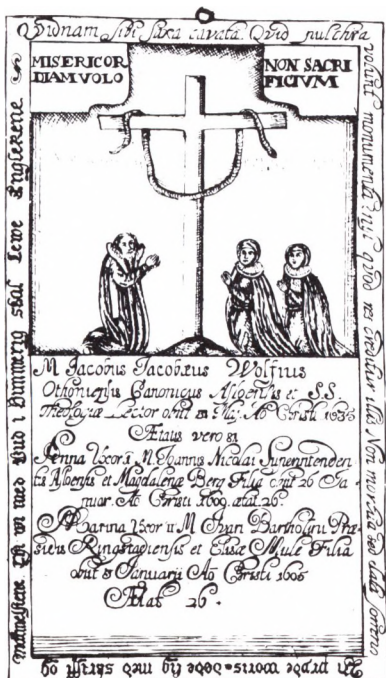 Quidnam sibi saxa cavata Quid pulchra
volunt monumenta nisi quod res creditur illis Non mortua sed data somno
MISERICOR
DIAM VOLO
NON SACRI
FICIVM
M Jacobus Jacobæus Wolfius
Othoniensis Canonicus Asloensis et S.S.
Theologiæ Lector obiit Maj. Ao Christi 1635
Ætatis vero 81
Anna Uxor M. Joannis Nicolai Superintenden
tis Asloensis et Magdalenæ Berg Filia obiit 26 Ja
nuar. Ao Christi 1609 ætat. 26.
Marina Uxor M Ivari Bartholini Præ
sidis Ringstadiensis et Elisæ Mule Filia
obiit 8 Januarii Ao Christi 1606
Ætat 26.
prÿde worris døde lig med skrifft og
met at wi med Gud i Himmerig skal Lewe Englerene